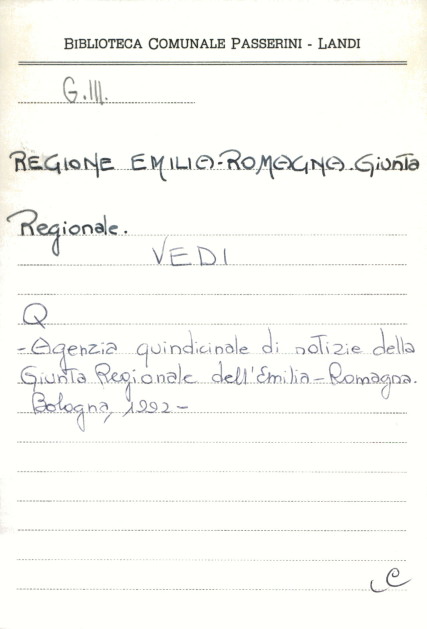 BIBLIOTECA COMUNALE PASSERINI - LANDI
G.III.
REGIONE EMILIA-ROMAGNA. Giunta
Regionale.
VEDI
Q
- Agenzia quindicinale di notizie della
Giunta Regionale dell'Emilia-Romagna.
Bologna, 1992-
C